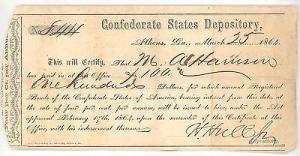 No. 544 Confederate States Depository,
Athens, Ga., March 25 1864.
This will Certify, That M. A. Harrison
has paid in at this Office $100.00
One Hundred Dollars, for which amount Registered
Bonds of the Confederate States of America, bearing interest from this date, at the
rate of four per cent. per annum, will be issued to him, under the Act
approved February 17th, 1864, upon the surrender of this Certificate at this
Office, with his indorsement thereon.
Depositary.